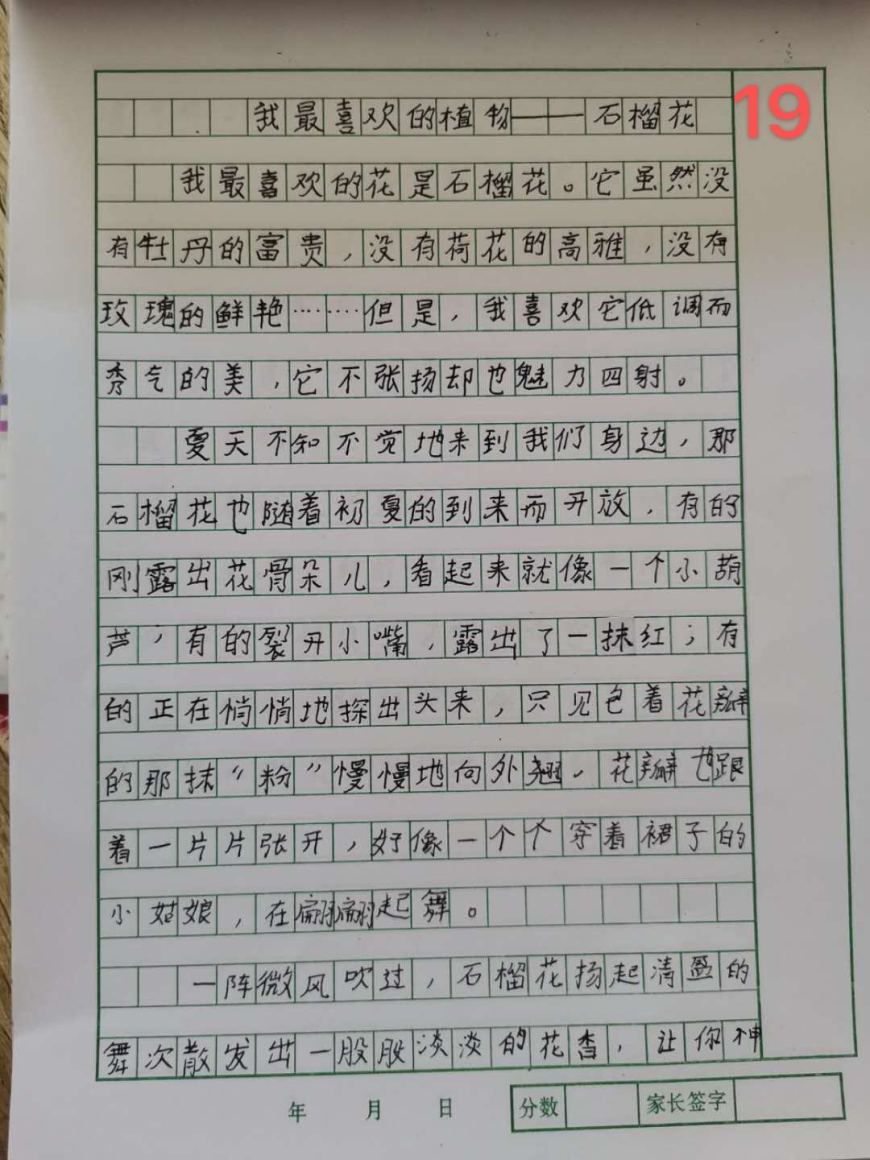 我最喜欢的植物——石榴花
19
我最喜欢的花是石榴花。它虽然没
有牡丹的富贵,没有荷花的高雅,没有
玫瑰的鲜艳……但是,我喜欢它低调而
秀气的美,它不张扬却也魅力四射。
夏天不知不觉地来到我们身边,那
石榴花也随着初夏的到来而开放,有的
刚露出花骨朵儿,看起来就像一个小葫
芦,有的裂开小嘴,露出了一抹红;有
的正在悄悄地探出头来,只见包着花瓣
的那抹“粉”慢慢地向外翘,花瓣也跟
着一片片张开,好像一个个穿着裙子的
小姑娘,在翩翩起舞。
一阵微风吹过,石榴花扬起清盈的
舞次散发出一股股淡淡的花香,让你神
年 月 日 分数 家长签字